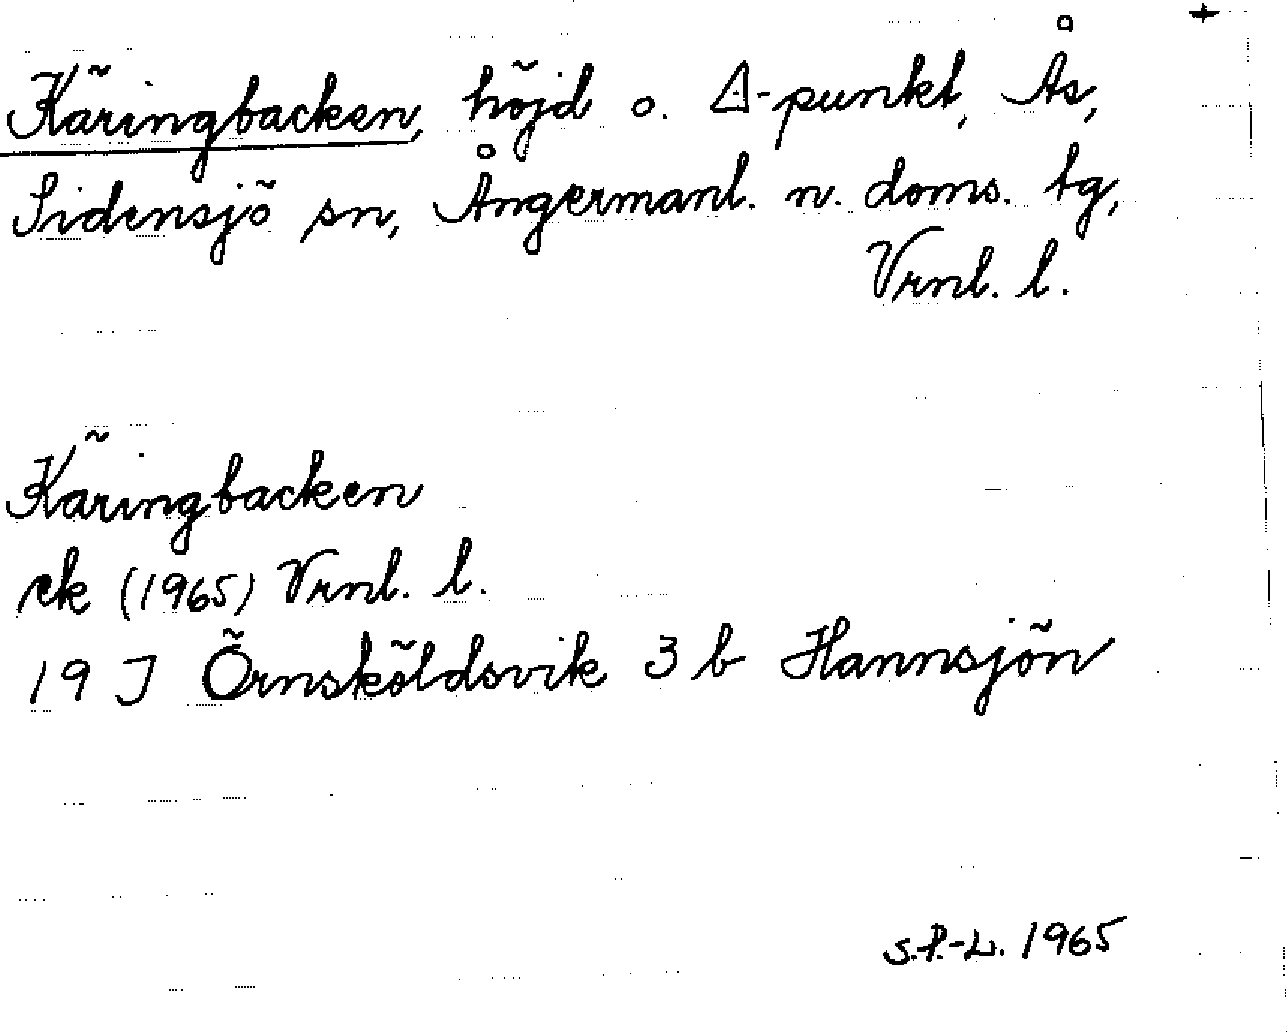 Käringbacken, höjd o. △-punkt, Ås,
Sidensjö sn, Ångermanl. n. doms. tg,
Vrnl. l.
Käringbacken
ek (1965) Vrnl. l.
19 J Örnsköldsvik 3 b Hannsjön
S.P.-L. 1965